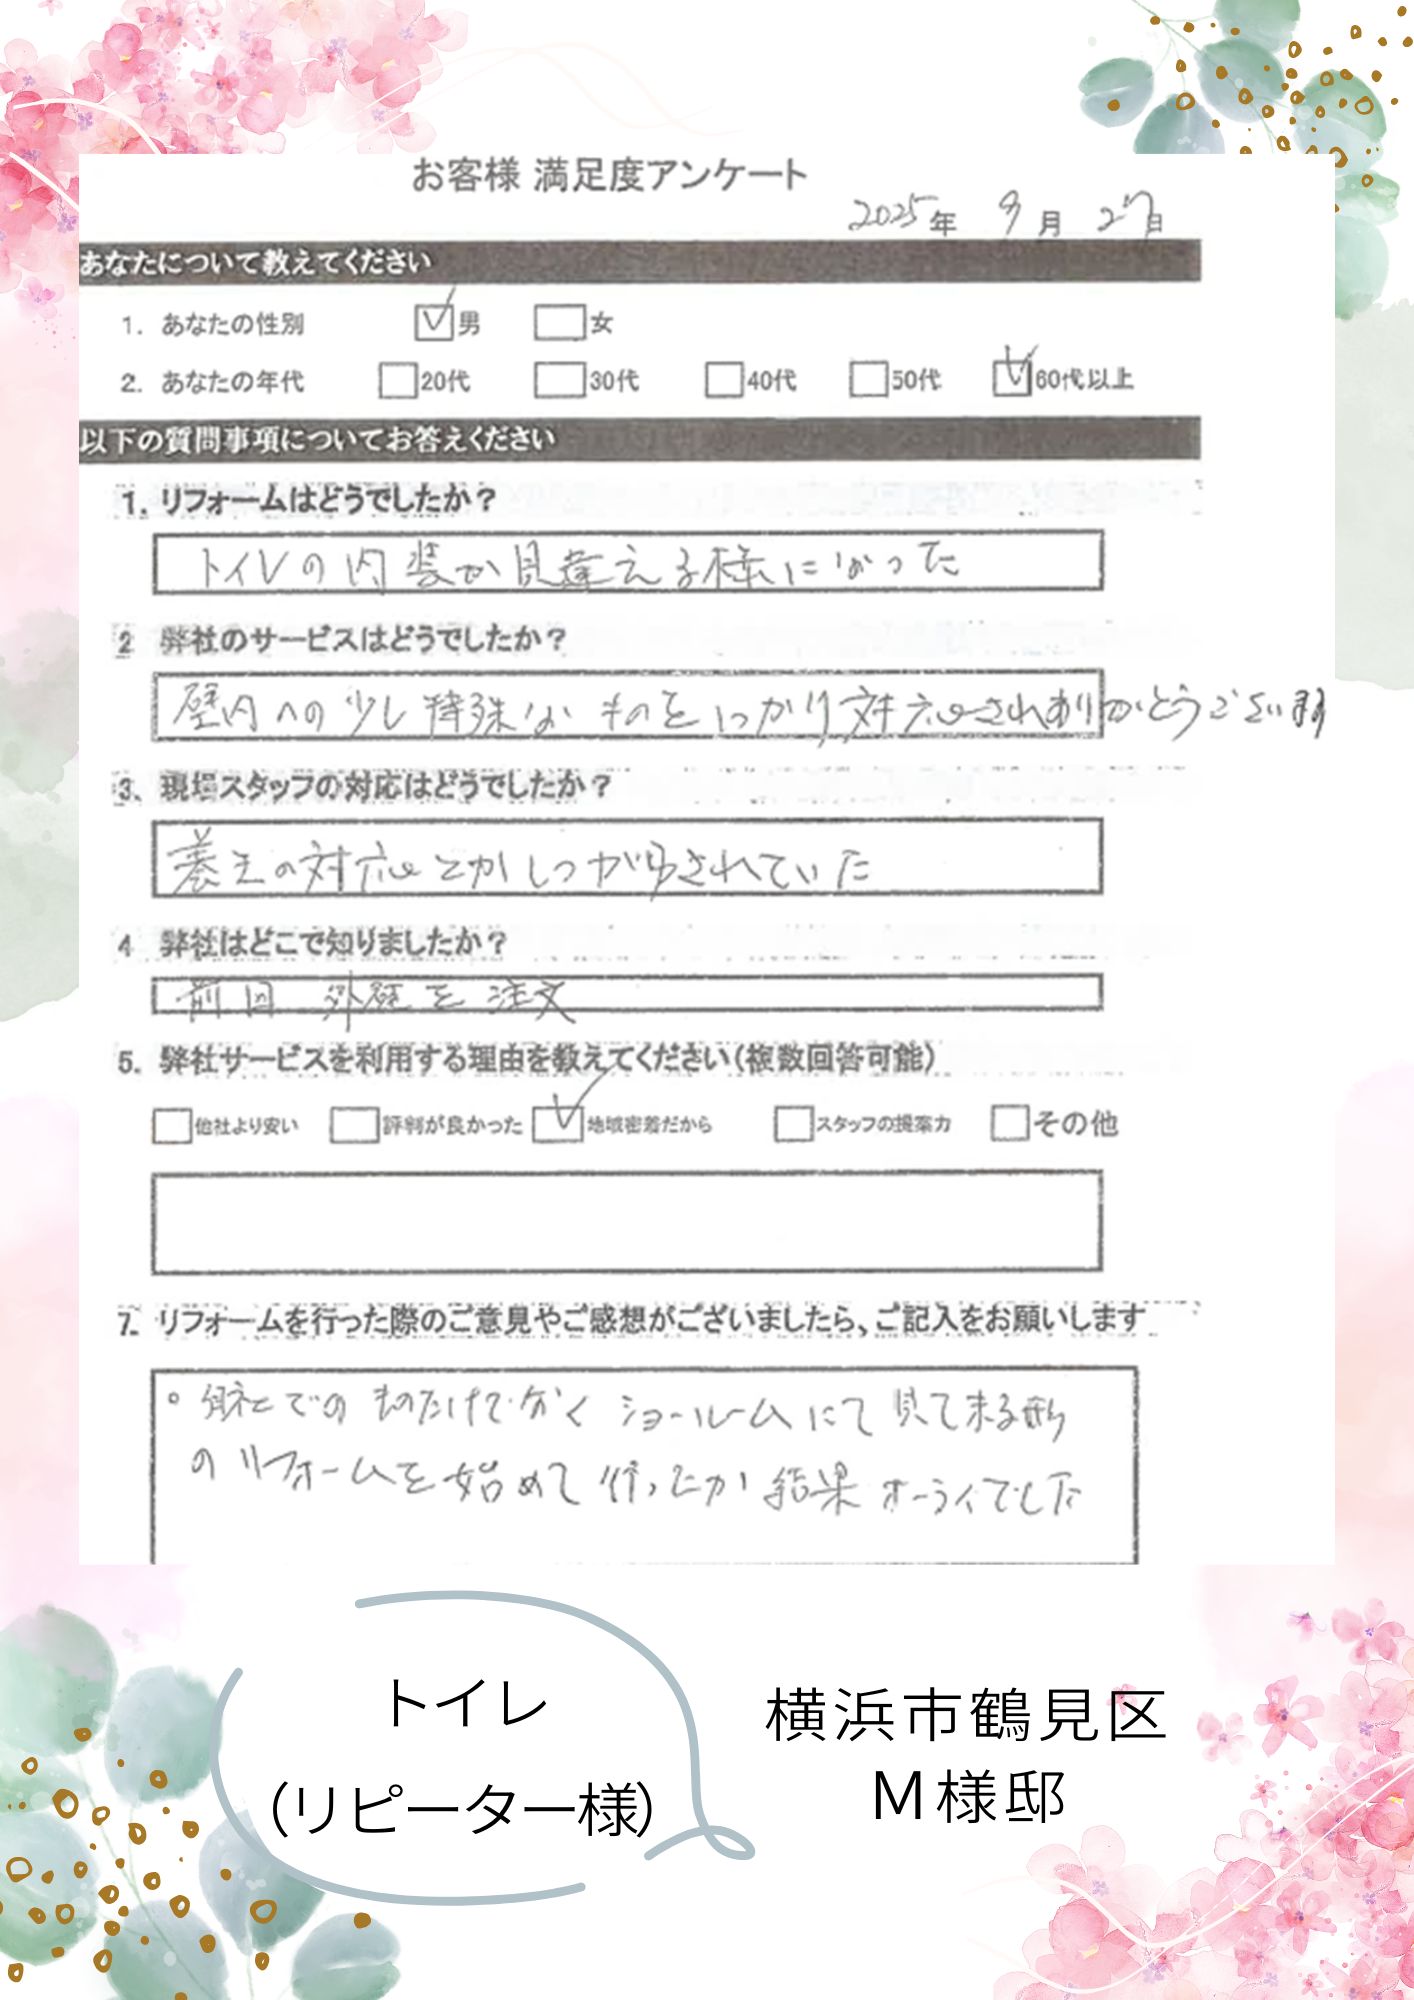 お客様 満足度アンケート
2025年 9月 27日
あなたについて教えてください
1. あなたの性別 男 女
2. あなたの年代 20代 30代 40代 50代 60代以上
以下の質問事項についてお答えください
1. リフォームはどうでしたか？
トイレの内装が見違える様になった
2 弊社のサービスはどうでしたか？
壁内への少し特殊なものをしっかり対応されありがとうございます
3. 現場スタッフの対応はどうでしたか？
養生の対応とかしっかりされていた
4 弊社はどこで知りましたか？
前回 外壁を注文
5. 弊社サービスを利用する理由を教えてください（複数回答可能）
他社より安い 評判が良かった 地域密着だから スタッフの提案力 その他
7. リフォームを行った際のご意見やご感想がございましたら、ご記入をお願いします
での ものだけでなく ショールームにて 見て来る形
のリフォームを始めて行ったが 結果オーライでした
トイレ
（リピーター様）
横浜市鶴見区
M様邸